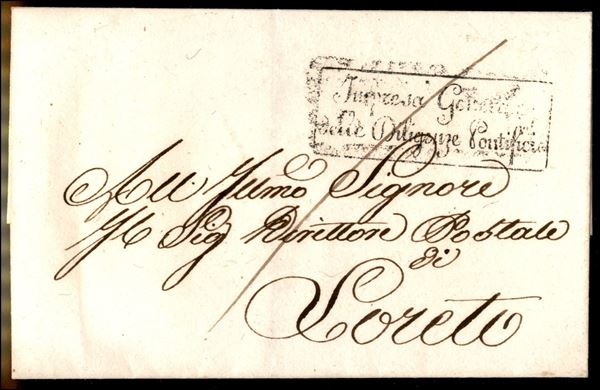 Impresa General
delle Diligenze Pontificie
All. Illmo Signore
Il Sig Direttore Postale
di
Loreto